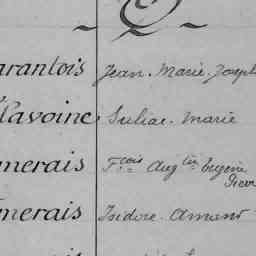 arantois Jean. Marie. Joseph
Pavoine Suliac. Marie
merais F.cois Aug.tin Eugène
Pierre
merais Isidore. Amand